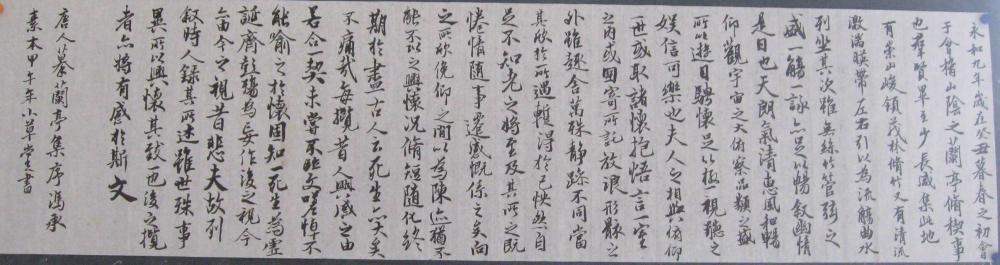 永和九年歲在癸丑暮春之初會
于會稽山陰之蘭亭脩稧事
也羣賢畢至少長咸集此地
有崇山峻領茂林脩竹又有清流
激湍暎帶左右引以為流觴曲水
列坐其次雖無絲竹管弦之
盛一觴一詠亦足以暢敘幽情
是日也天朗氣清惠風和暢
仰觀宇宙之大俯察品類之盛
所以遊目騁懷足以極視聽之
娛信可樂也夫人之相與俯仰
一世或取諸懷抱悟言一室
之內或因寄所託放浪形骸之
外雖趣舍萬殊静躁不同當
其欣於所遇暫得於己怏然自
足不知老之將至及其所之既
惓情隨事遷感慨係之矣向
之所欣俛仰之間以為陳迹猶不
能不以之興懷況脩短隨化終
期於盡古人云死生亦大矣
不痛哉每攬昔人興感之由
若合一契未嘗不臨文嗟悼不
能喻之於懷固知一死生為虛
誕齊彭殤為妄作後之視今
亦由今之視昔悲夫故列
敘時人錄其所述雖世殊事
異所以興懷其致一也後之攬
者亦將有感於斯文
唐人摹蘭亭集序馮承
素本甲午年小草堂書